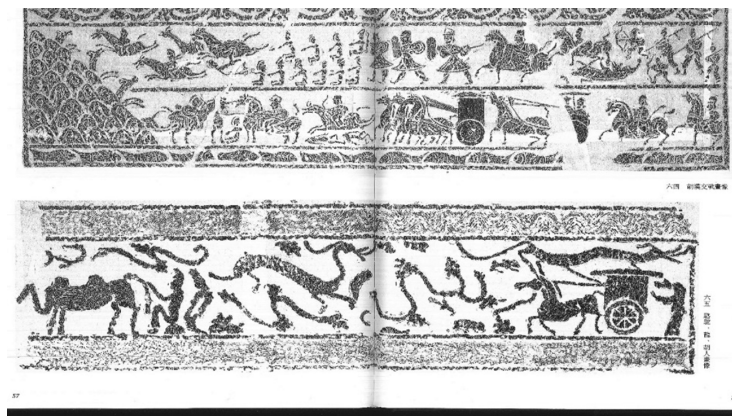 六四 胡漢交戰畫像
六五 駱駝、龍、胡人畫像
57